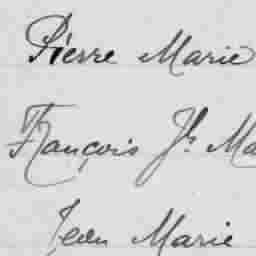 Pierre Marie
François Jh Ma
Jean Marie